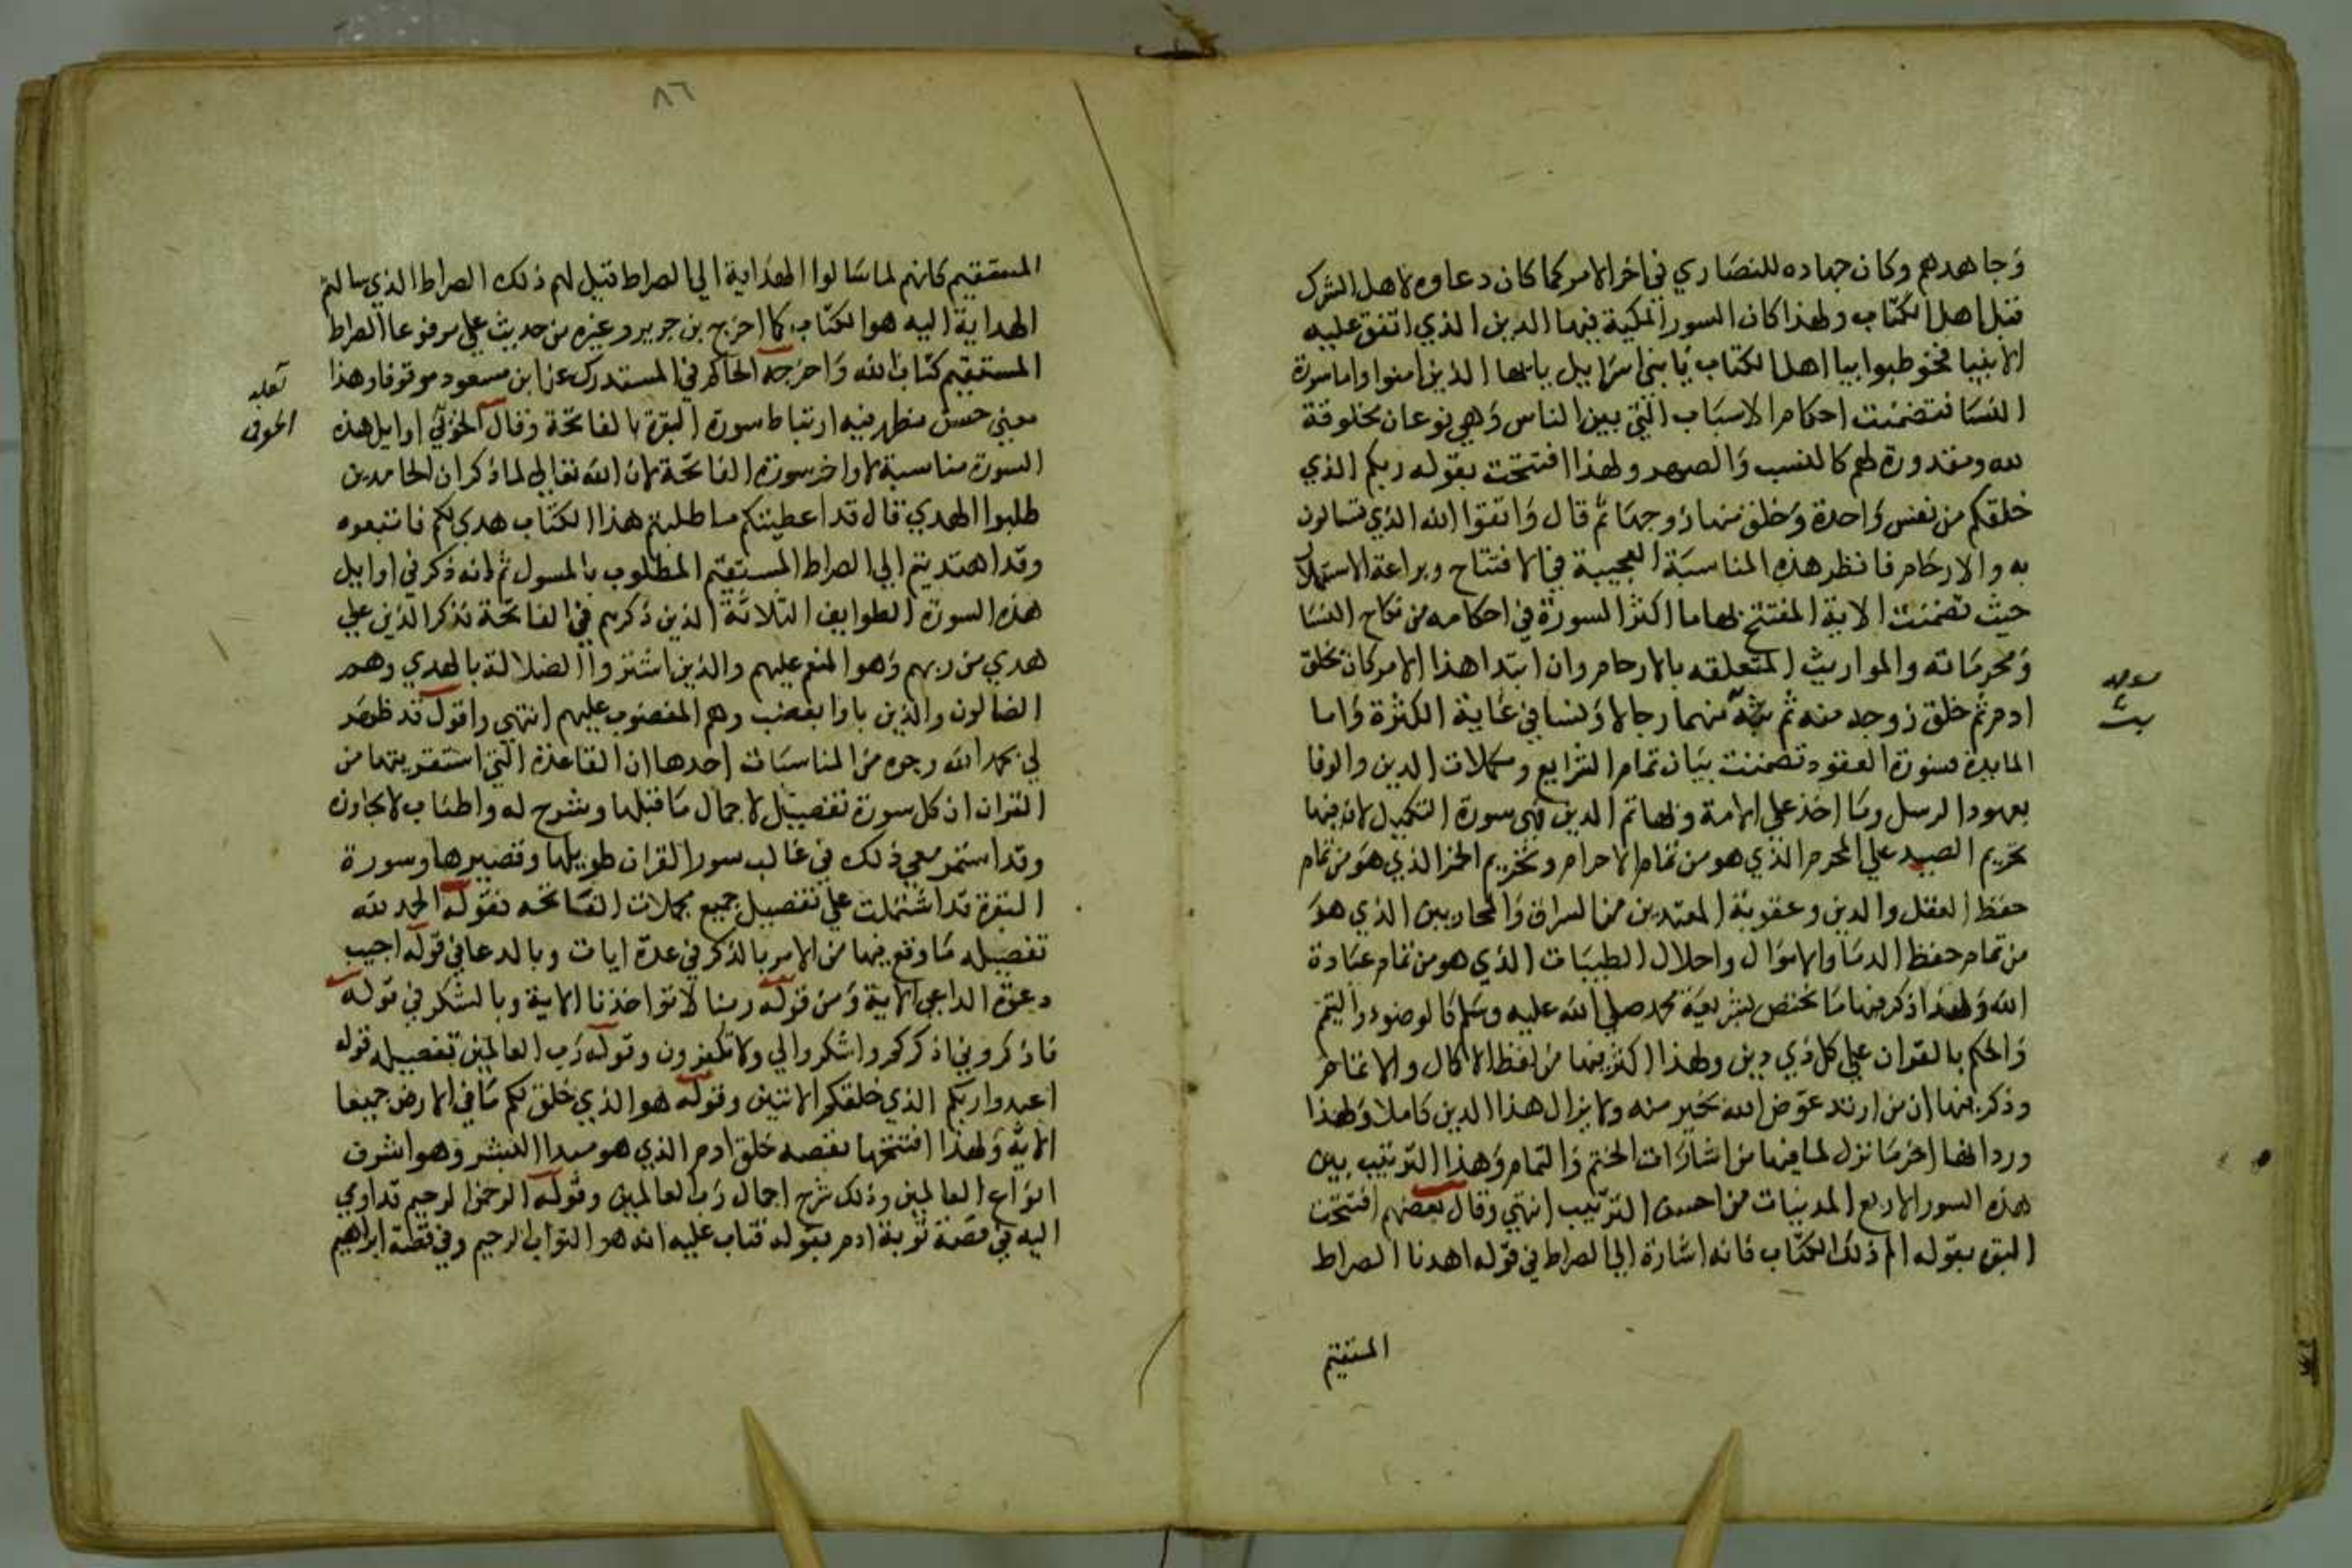 وجاهدهم وكان جهاده للنصاري في اخر الامر كما كان دعاوه لاهل الشرك
قبل اهل الكتاب ولهذا كان السور المكية فيها الدين الذي اتفق عليه
الانبيا فخوطبوا بيا اهل الكتاب يا بني اسرايل يا ايها الذين امنوا واما سورة
النسا فتضمنت احكام الاسباب التي بين الناس وهي نوعان مخلوقة
لله ومقدورة لهم كالنسب والصهر ولهذا افتتحت بقوله ربكم الذي
خلقكم من نفس واحدة وخلق منها زوجها ثم قال واتقوا الله الذي تسالون
به والارحام فانظر هذه المناسبة العجيبة في الافتتاح وبراعة الاستهلال
حيث تضمنت الاية المفتتح بها ما اكثر السورة في احكامه من نكاح النسا
ومحرماته والمواريث المتعلقه بالارحام وان ابتدا هذا الامر كان بخلق
ادم ثم خلق زوجه منه ثم بث منهما رجالا ونسا في غاية الكثرة واما
المايدة فسورة العقود تضمنت بيان تمام الشرايع ومكملات الدين والوفا
بعهود الرسل وما اخذ علي الامة وبها تم الدين فهي سورة التكميل لان فيها
تحريم الصيد علي المحرم الذي هو من تمام الاحرام وتحريم الخمر الذي هو من تمام
حفظ العقل والدين وعقوبة المعتدين من السراق والمحاربين الذي هو
من تمام حفظ الدما والاموال واحلال الطيبات الذي هو من تمام عبادة
الله ولهذا ذكر فيها ما يختص بشريعة محمد صلي الله عليه وسلم كالوضوء والتيمم
والحكم بالقران علي كل ذي دين ولهذا اكثر فيها من لفظ الاكمال والاتمام
وذكر فيها ان من ارتد عوض الله بخير منه ولا يزال هذا الدين كاملا ولهذا
ورد انها اخر ما نزل لما فيها من اشارات الختم والتمام وهذا الترتيب بين
هذه السور الاربع المدنيات من احسن الترتيب انتهي وقال بعضهم افتتحت
البقرة بقوله الم ذلك الكتاب فانه اشارة الي الصراط في قوله اهدنا الصراط
المستقيم
٨٦
المستقيم كانهم لما سالوا الهداية الي الصراط قيل لهم ذلك الصراط الذي سالتم
الهداية اليه هو الكتاب كما اخرج بن جرير وغيره من حديث علي مرفوعا الصراط
المستقيم كتاب الله واخرجه الحاكم في المستدرك عن ابن مسعود موقوفا وهذا
معني حسن يظهر فيه ارتباط سورة البقرة بالفاتحة وقال الخوئي اوايل هذه
السورة مناسبة لاواخر سورة الفاتحة لان الله تعالي لما ذكر ان الحامدين
طلبوا الهدي قال قد اعطيتكم ما طلبتم هذا الكتاب هدي لكم فاتبعوه
وقد اهتديتم الي الصراط المستقيم المطلوب بالمسول ثم انه ذكر في اوايل
هذه السورة الطوايف الثلاثة الذين ذكرهم في الفاتحة فذكر الذين علي
هدي من ربهم وهو المنعم عليهم والذين اشتروا الضلالة بالهدي وهم
الضالون والذين باوا بغضب وهم المغضوب عليهم انتهي واقول قد ظهر
لي بحمد الله وجوه من المناسبات احدها ان القاعدة التي استقريتها من
القران ان كل سورة تفصيل لاجمال ما قبلها وشرح له واطناب لايجازه
وقد استمر معي ذلك في غالب سور القران طويلها وقصيرها وسورة
البقرة قد اشتملت علي تفصيل جميع مجملات الفاتحه فقوله الحمد لله
تفصيله ما وقع فيها من الامر بالذكر في عدة ايات وبالدعا في قوله اجيب
دعوة الداعي الاية ومن قوله ربنا لا تواخذنا الاية وبالشكر في قوله
فاذكروني اذكركم واشكروا لي ولا تكفرون وقوله رب العالمين تفصيله قوله
اعبدوا ربكم الذي خلقكم الايتين وقوله هو الذي خلق لكم ما في الارض جميعا
الاية ولهذا افتتحها بقصه خلق ادم الذي هو مبدا البشر وهو اشرف
انواع العالمين وذلك شرح اجمال رب العالمين وقوله الرحمن الرحيم قد اومي
اليه في قصة توبة ادم بقوله فتاب عليه انه هو التواب الرحيم وفي قصة ابراهيم